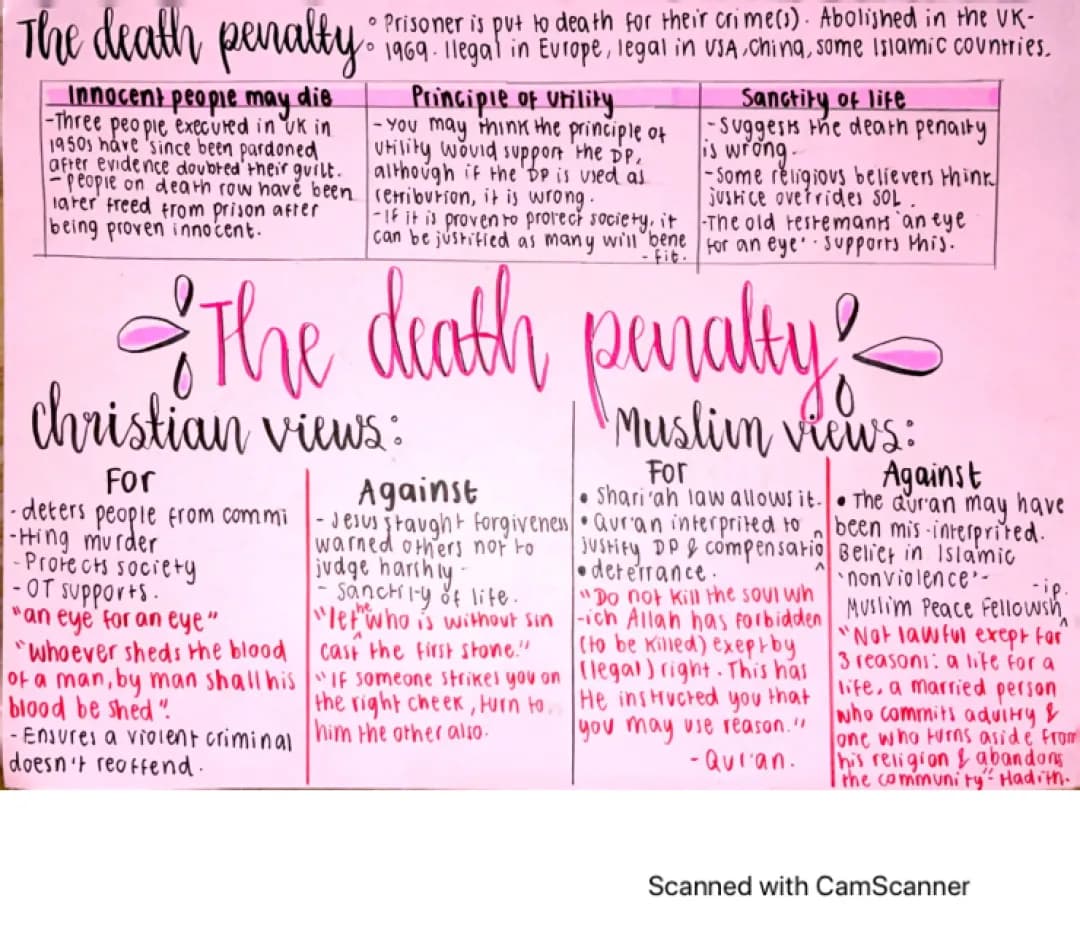 The death penalty
° Prisoner is put to death for their crime(s). Abolished in the UK-
° 1969. Ilegal in Europe, legal in USA, China, some Islamic countries.
Innocent people may die
-Three people executed in UK in
1950s have since been pardoned
after evidence doubted their guilt.
- people on death row have been
later freed from prison after
being proven innocent.
Principle of utility
- You may think the principle of
utility would support the DP,
although if the DP is used as
retribution, it is wrong.
-If it is proven to protect society, it
can be justified as many will bene
-fit.
Sanctity of life
- Suggests the death penalty
is wrong.
-Some religious believers think
justice overrides SOL.
-The old testemants 'an eye
for an eye'. supports this.
The death penalty
Christian views:
For
- deters people from commi
-tting murder
- Protects society
- OT supports.
"an eye for an eye"
"Whoever sheds the blood
of a man, by man shall his
blood be shed".
- Ensures a violent criminal
doesn't reoffend.
Against
- Jesus taught forgiveness
warned others not to
judge harshly-
- Sanctity of life.
"let he who is without sin
cast the first stone."
"If someone strikes you on
the right cheek, turn to
him the other also.
Muslim views:
For
• Shari'ah law allows it.
• Qur'an interprited to
justify DP & compensation
• deterrance.
"Do not kill the soul wh
-ich Allah has forbidden
(to be killed) exept by
(legal) right. This has
He instructed you that
you may use reason."
- Qur'an.
Against
• The Qur'an may have
been mis-interprited.
Belief in Islamic
'nonviolence'-
-ip.
Muslim Peace Fellowsh
"Not lawful exept for
3 reasons: a life for a
life, a married person
who commits adultry &
one who turns aside from
his religion & abandons
the community"- Hadith.
Scanned with CamScanner